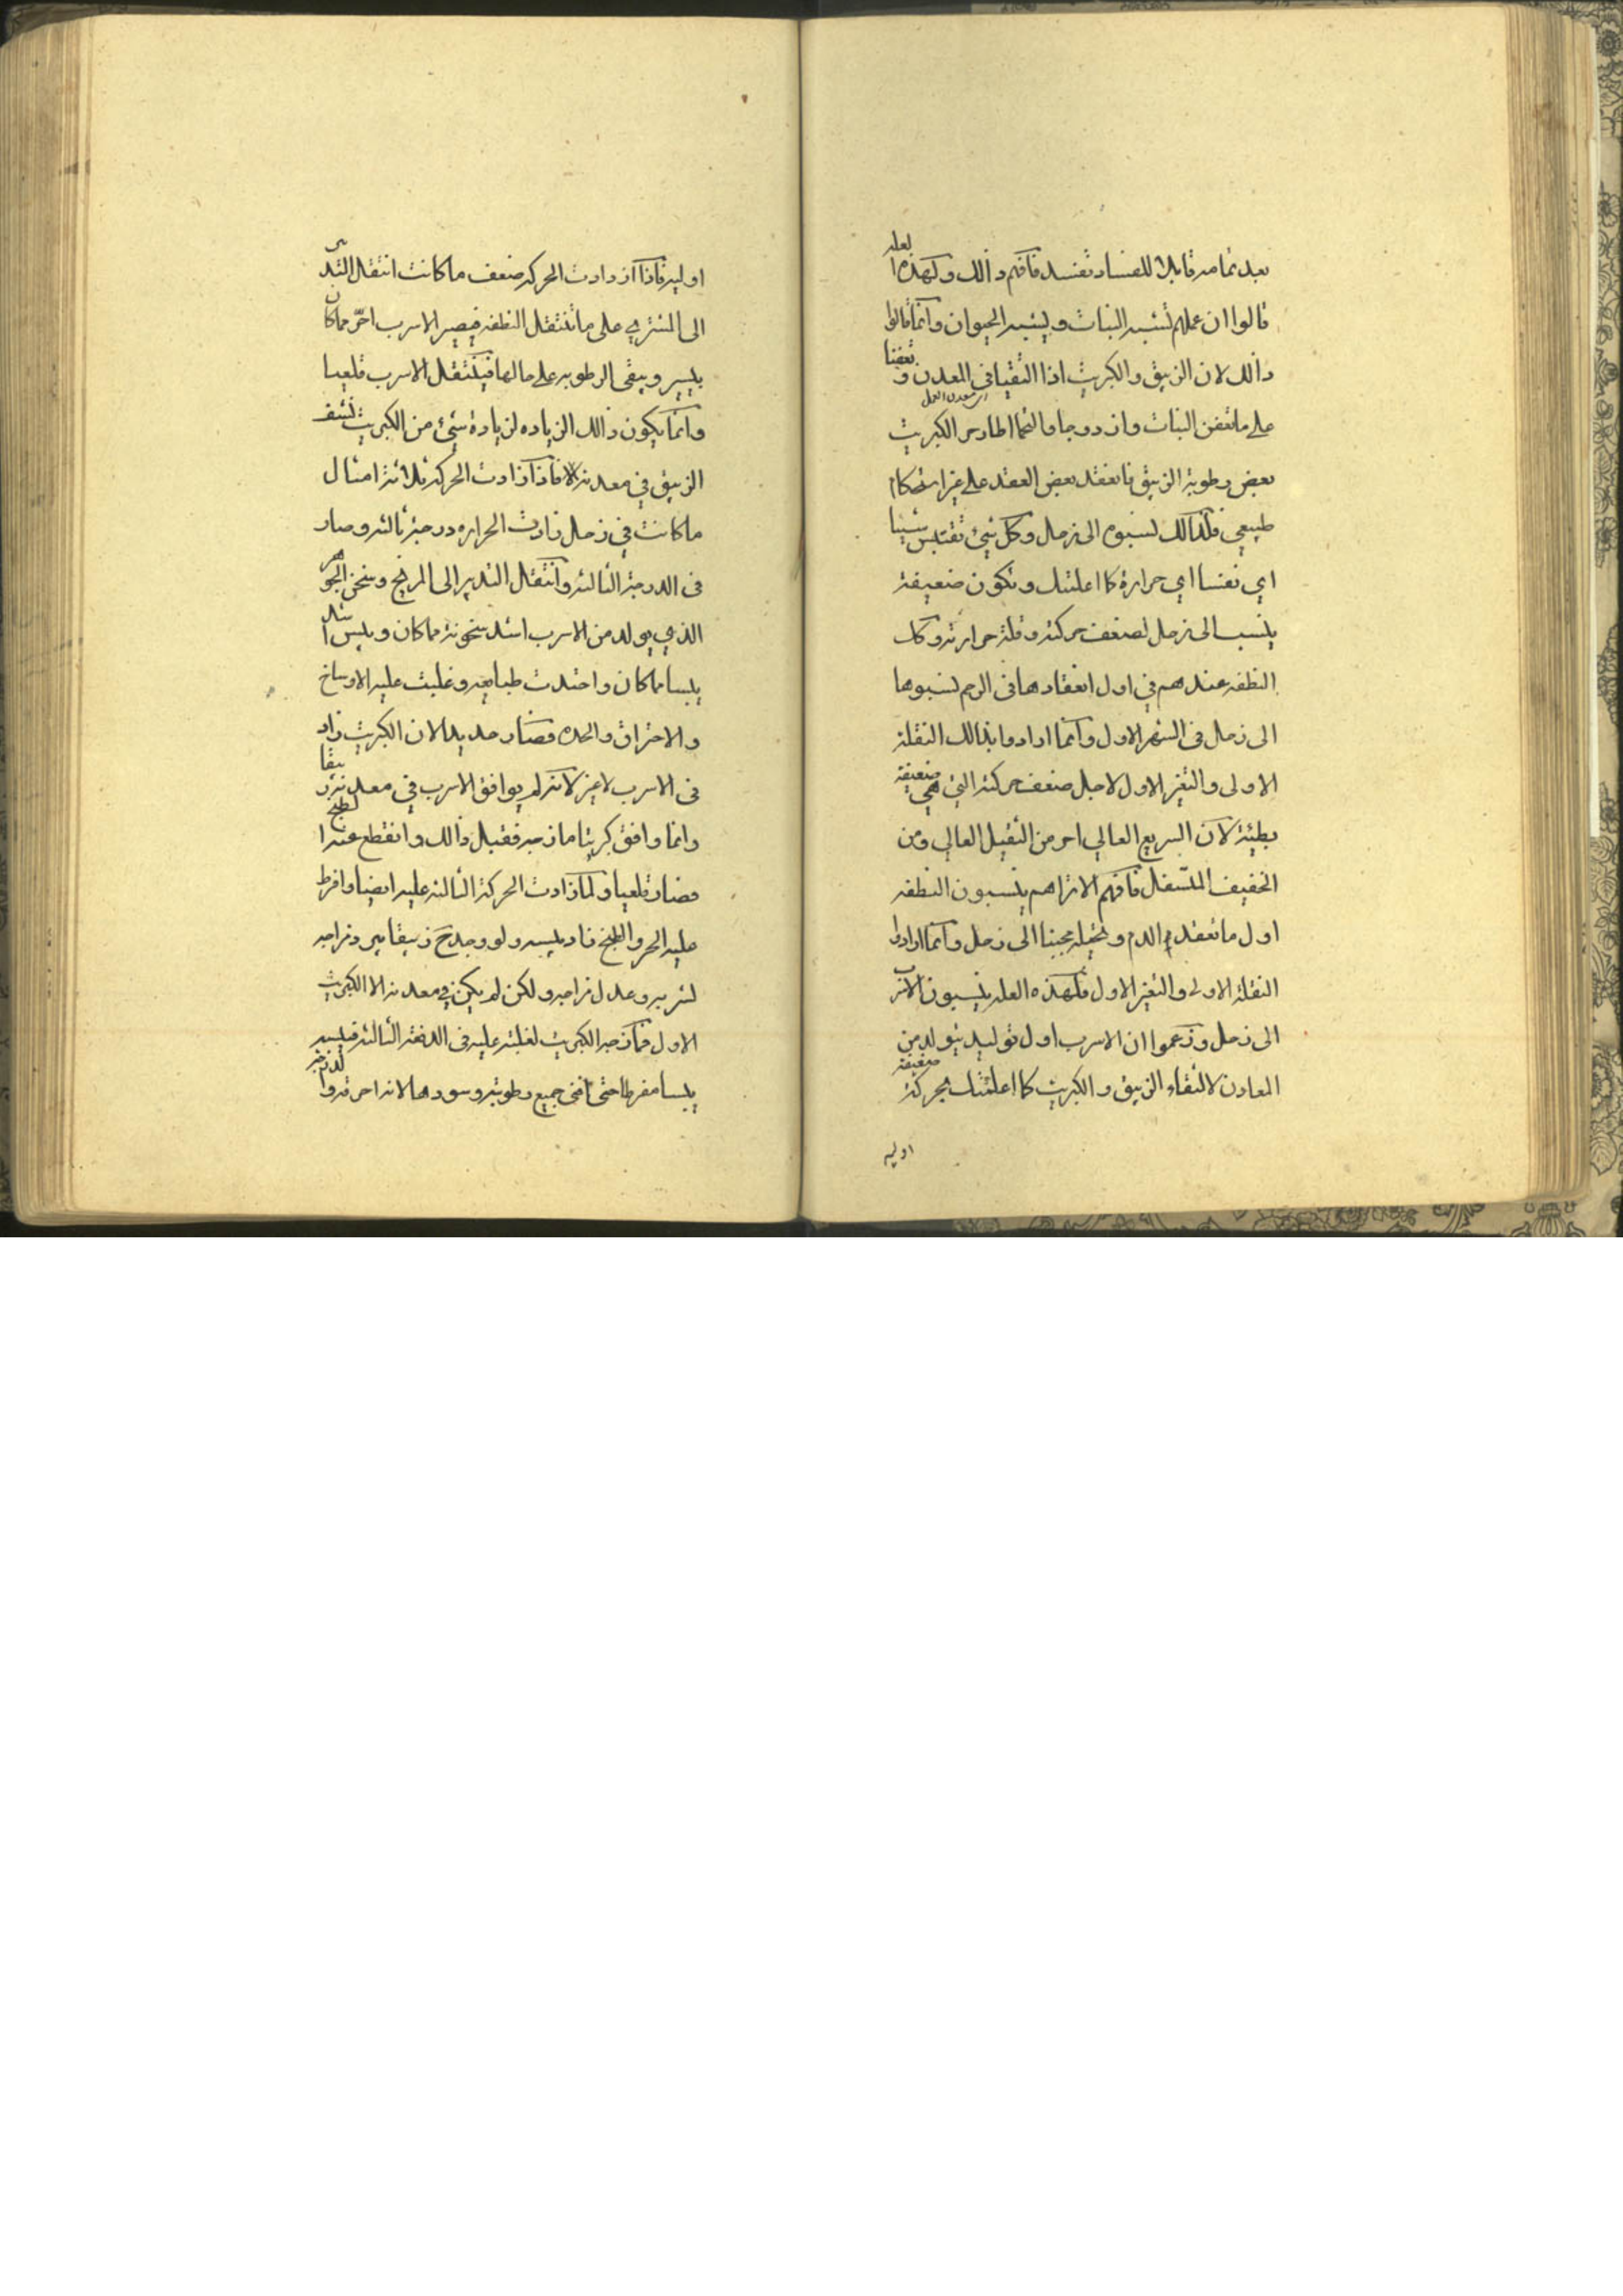 بعد تمامه قابلا للفساد تفسد فافهم ذالك ولهذه العله
قالوا ان عملهم يشبه النبات ويشبه الحيوان وانما قالوا
ذالك لان الزيبق والكبريت اذا التقيا في المعدن وتعفنا
على ما تعفن النبات وازدوجا والتحما الحار من الكبريت
بعض رطوبة الزيبق فانعقد بعض العقد على غير استحكام
طبيعي فلذالك نسبوه الى زحل وكل شيئ تقتبس شيبا
اي نفسا اي حرارة كما اعلمتك وتكون ضعيفة
ينسب الى زحل لضعف حركته وقلة حرارته وكل
النطفه عندهم في اول انعقادها في الرحم نسبوها
الى زحل في الشهر الاول وانما ارادوا بذالك النقلة
الاولى والتغير الاول لاجل ضعف حركته التي هي ضعيفة
بطيئة لان السريع العالي احر من الثقيل العالي ومن
الخفيف المتسفل فافهم الا تراهم ينسبون النطفه
اول ما تعقد الدم وتحيله جنينا الى زحل وانما ارادوا
النقلة الاولى والتغير الاول فلهذه العله ينسبون الاسرب
الى زحل وزعموا ان الاسرب اول توليد يتولد من
المعادن لالتقاء الزيبق والكبريت كما اعلمتك بحركة ضعيفة
اوليه
اوليه فاذا ازدادت الحركه ضعف ما كانت انتقل التدبير
الى المشتري على ما تنتقل النطفه فيصير الاسرب احرّ مما كان
بيسير ويبقى الرطوبه على حالها فينتقل الاسرب قلعيا
وانما يكون ذالك الزياده لزيادة شيئ من الكبريت نشف
الزيبق في معدنه الا فاذا زادت الحركه ثلاثة امثال
ما كانت في زحل زادت الحراره درجة ثالثه وصار
في الدرجة الثالثه وانتقل التدبير الى المريخ وسخن الجوهر
الذي يولد من الاسرب اشد سخونة مما كان ويبس اشد
يبسا مما كان واحتدت طبايعه وغلبت عليه الاوساخ
والاحتراق والحده فصار حديدا لان الكبريت زاد
في الاسرب لا غير لانه لم يوافق الاسرب في معدنه زيبقا
وانما وافق كبريتا مازجه فقبل ذالك وانقطع عنه الطبخ
فصار قلعيا ولما زادت الحركة الثالثه عليه ايضا وافرط
عليه الحر والطبخ زاد يبسه ولو وجد ح زيبقا يمازجه
لشربه وعدل مزاجه ولكن لم يكن في معدنه الا الكبريت
الاول فمازجه الكبريت لغلبته عليه في الدفعة الثالثه فيبسه
يبسا مفرطا حتى افنى جميع رطوبته وسودها لانه احرقه